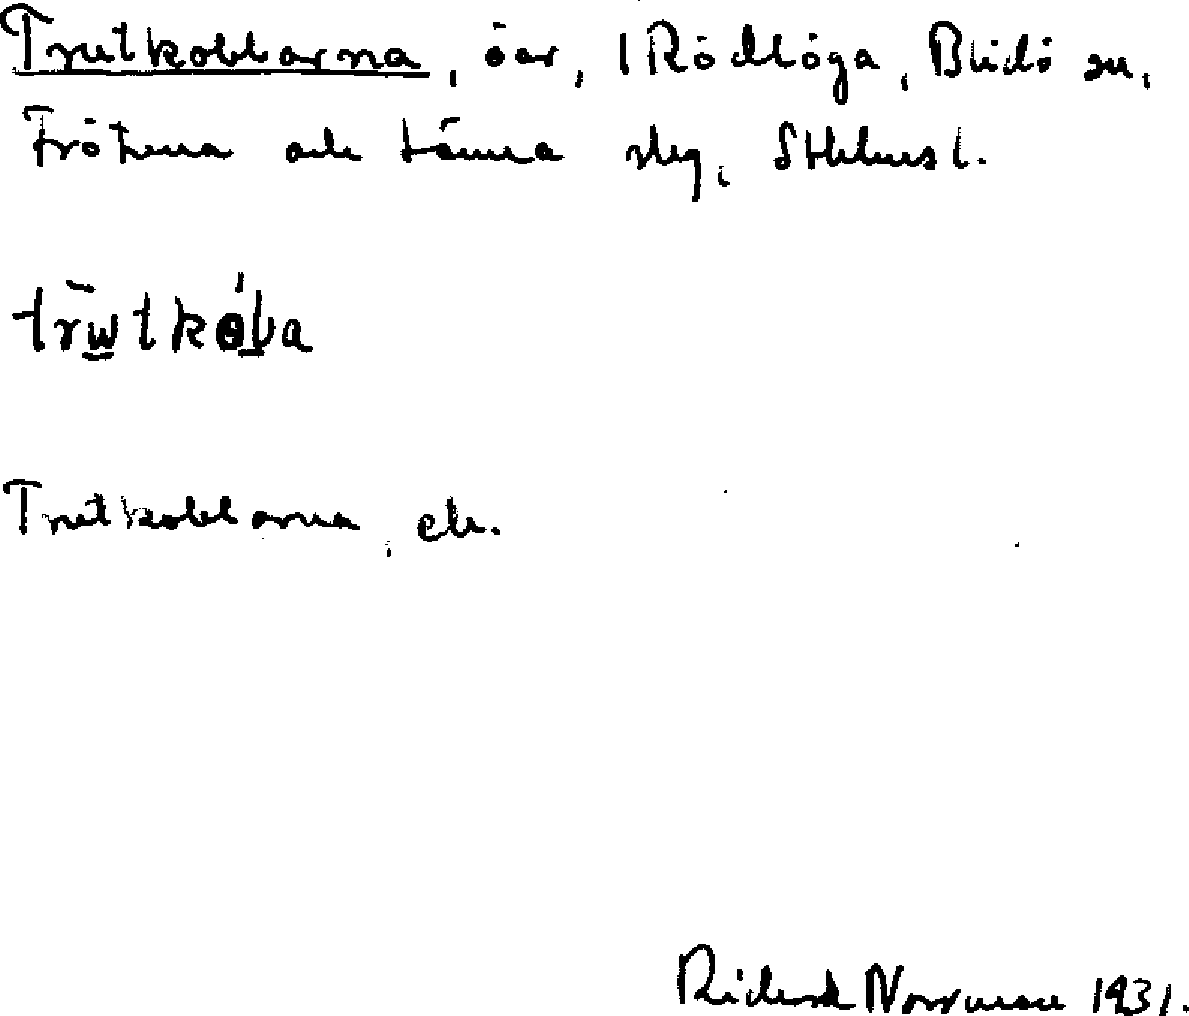 Trutkobbarna, öar, i Rödlöga, Blidö sn,
Frötuna och Länna slg, Sthlms l.
trw̄tkòba
Trutkobbarna, ek.
Rickard Norrman 1931.